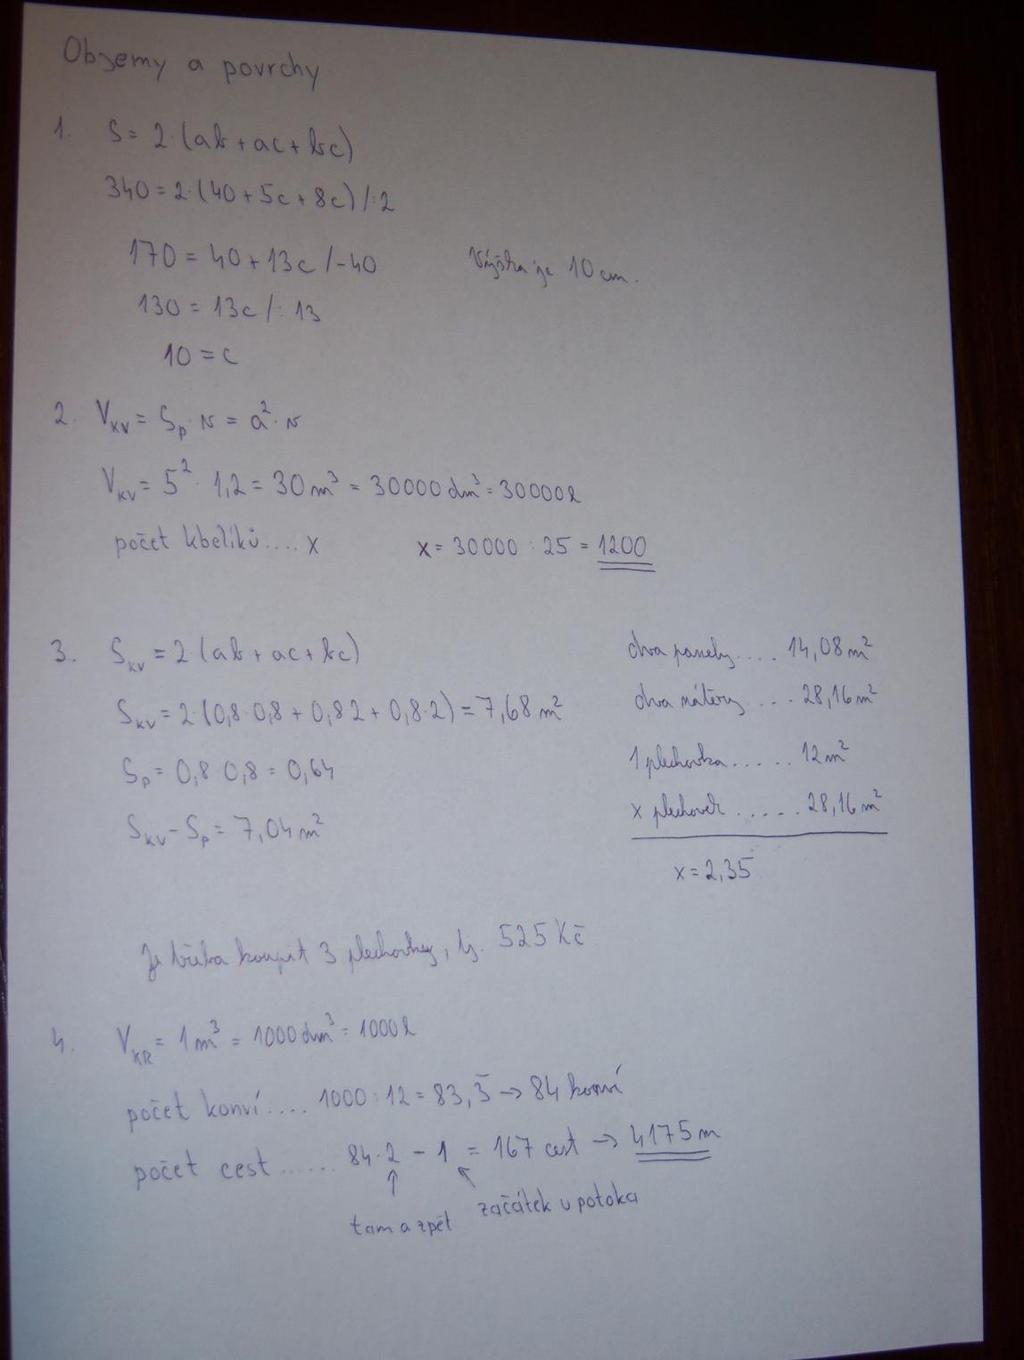 Objemy a povrchy
1. S = 2·(ab + ac + bc)
340 = 2·(40 + 5c + 8c) /:2
170 = 40 + 13c /-40
Výška je 10 cm.
130 = 13c /: 13
10 = c
2. V_KV = S_p · v = a² · v
V_KV = 5² · 1,2 = 30 m³ = 30000 dm³ = 30000 l
počet kbelíků .... x x = 30000 : 25 = 1200
3. S_KV = 2 (ab + ac + bc)
S_KV = 2·(0,8·0,8 + 0,8·2 + 0,8·2) = 7,68 m²
S_p = 0,8·0,8 = 0,64
S_KV - S_p = 7,04 m²
dva panely .... 14,08 m²
dva nátěry .... 28,16 m²
1 plechovka ..... 12 m²
x plechovek ..... 28,16 m²
x = 2,35
Je třeba koupit 3 plechovky, tj. 525 Kč
4. V_KR = 1 m³ = 1000 dm³ = 1000 l
počet konví .... 1000 : 12 = 83,3̄ → 84 konví
počet cest ...... 84·2 - 1 = 167 cest → 4175 m
tam a zpět
začátek u potoka